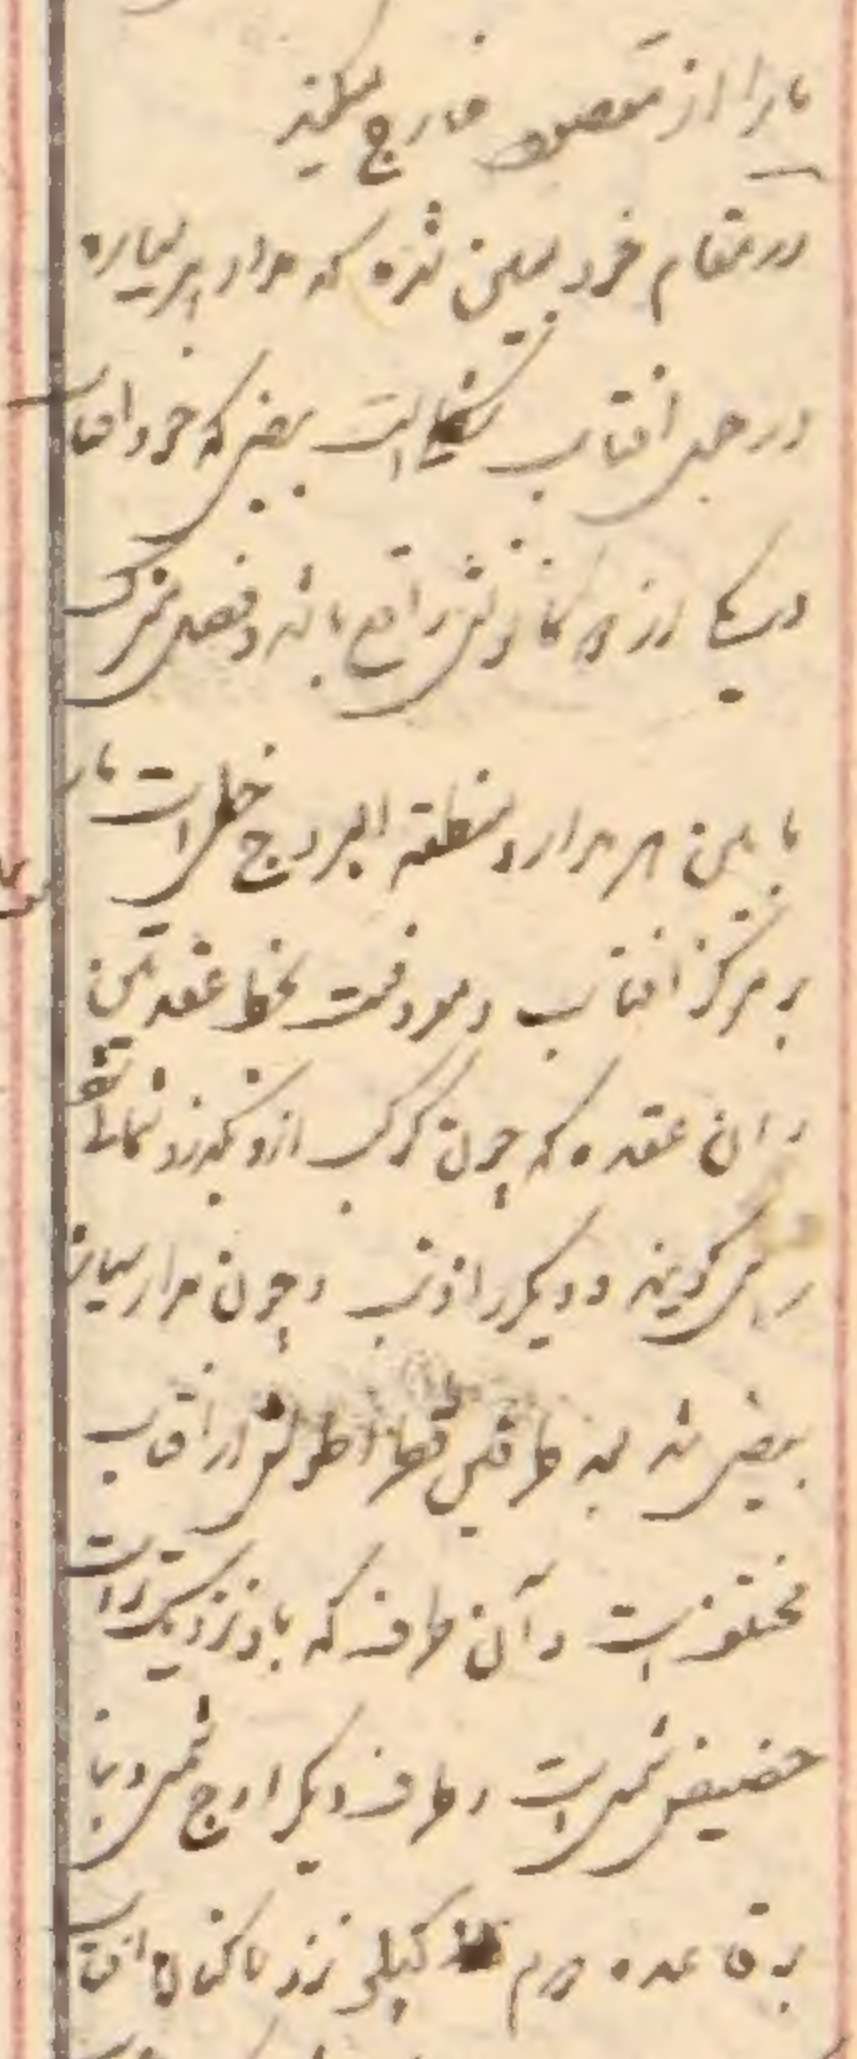 ما را از مقصود خارج میکند
در مقام خود مبین شده که مدار هر سیاره
در حول افتاب شکلی است بیضی که خود افتاب
در یکی از دو کانونش واقع باشد و فصل مشترک
مابین هر مدار و منطقة البروج خطی است مار
بر مرکز افتاب و معروفست بخط عقدتین
و ان عقده که چون کوکب ازو بگذرد شمالی شود
راس گویند و دیگر را ذنب و چون مدار سیارات
بیضی شد بعد طرفین قطر اطولش از افتاب
مختلف است و آن طرف که باو نزدیکتر است
حضیض شمس است و طرف دیگر اوج شمس و بنا
بر قاعده دوم کپلر نزد ساکنان افتاب